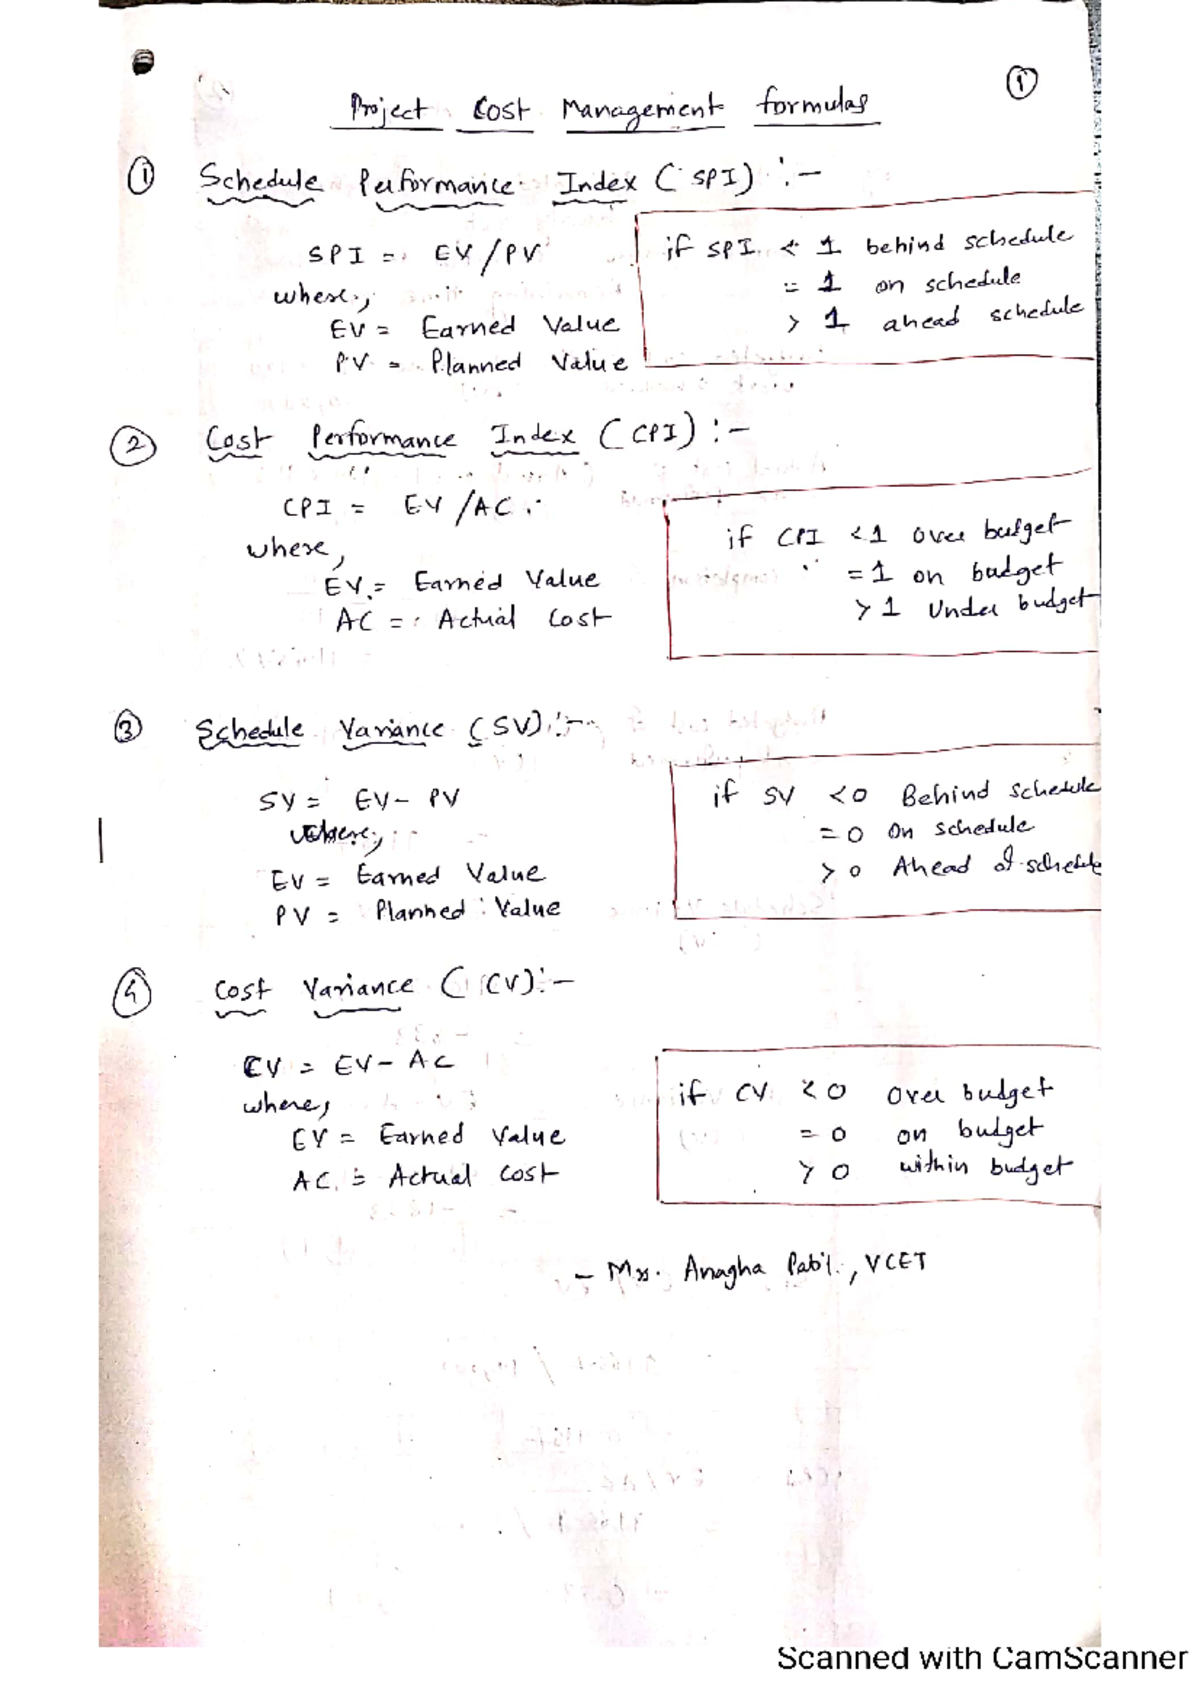 1
Project Cost Management formulas
1 Schedule Performance Index (SPI) :-
SPI = EV/PV
where,
EV = Earned Value
PV = Planned Value
if SPI < 1 behind schedule
= 1 on schedule
> 1 ahead schedule
2 Cost Performance Index (CPI) :-
CPI = EV/AC
where,
EV = Earned Value
AC = Actual Cost
if CPI < 1 over budget
= 1 on budget
> 1 Under budget
3 Schedule Variance (SV) :-
SV = EV - PV
where,
EV = Earned Value
PV = Planned Value
if SV < 0 Behind schedule
= 0 On schedule
> 0 Ahead of schedule
4 Cost Variance (CV) :-
CV = EV - AC
where,
EV = Earned Value
AC = Actual Cost
if CV < 0 Over budget
= 0 on budget
> 0 within budget
- Mrs. Anagha Patil, VCET
Scanned with CamScanner